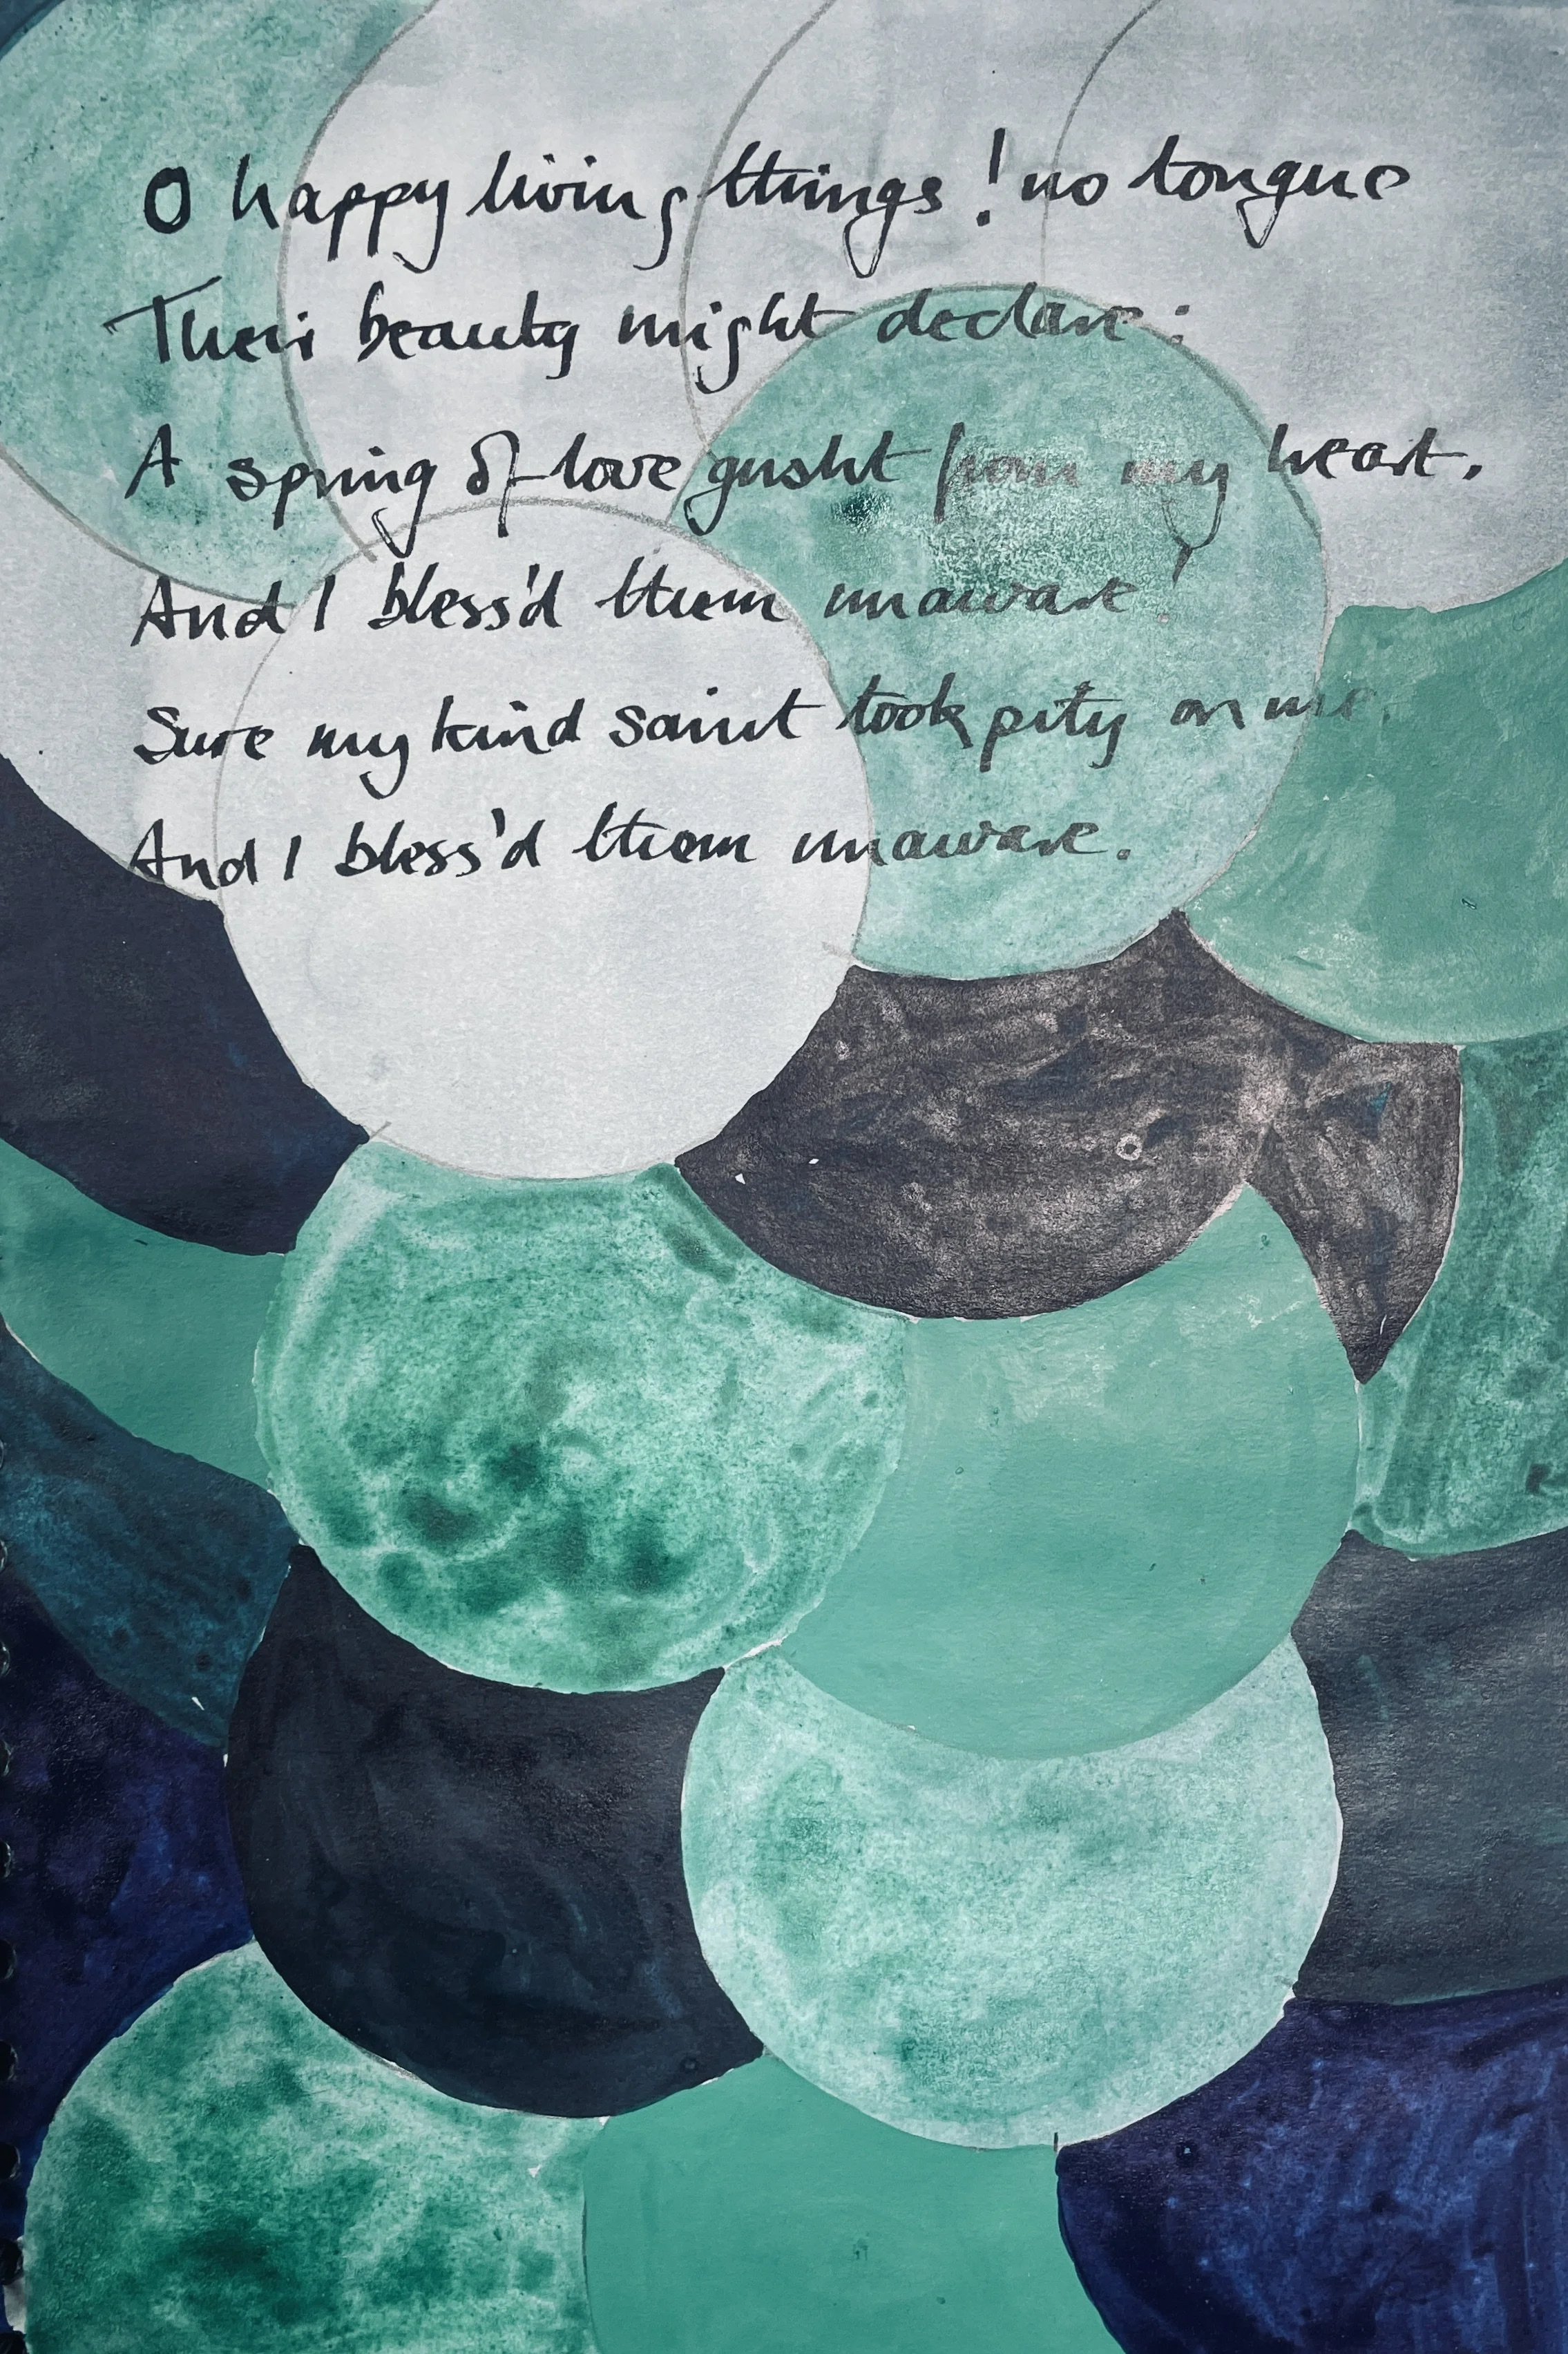 O happy living things! no tongue
Their beauty might declare:
A spring of love gusht from my heart,
And I bless'd them unaware!
Sure my kind saint took pity on me,
And I bless'd them unaware.